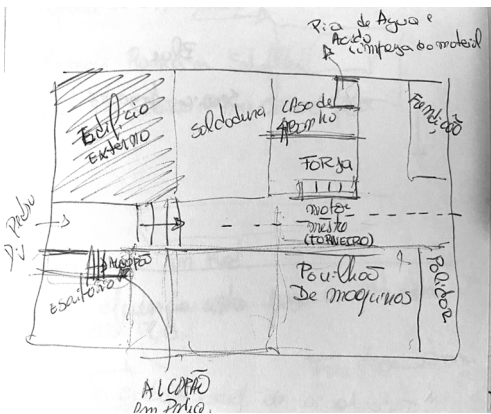 Pia de Água e
Acido
limpeza do material
Edifício
Externo
soldadura
CASO de
Banho
FORJA
Fundição
motor
mestre
(TORNEIRO)
D. Pedro
V
ALÇAPÃO
Escritório
Pavilhão
De maquinas
Polidor
ALÇAPÃO
em Pedra